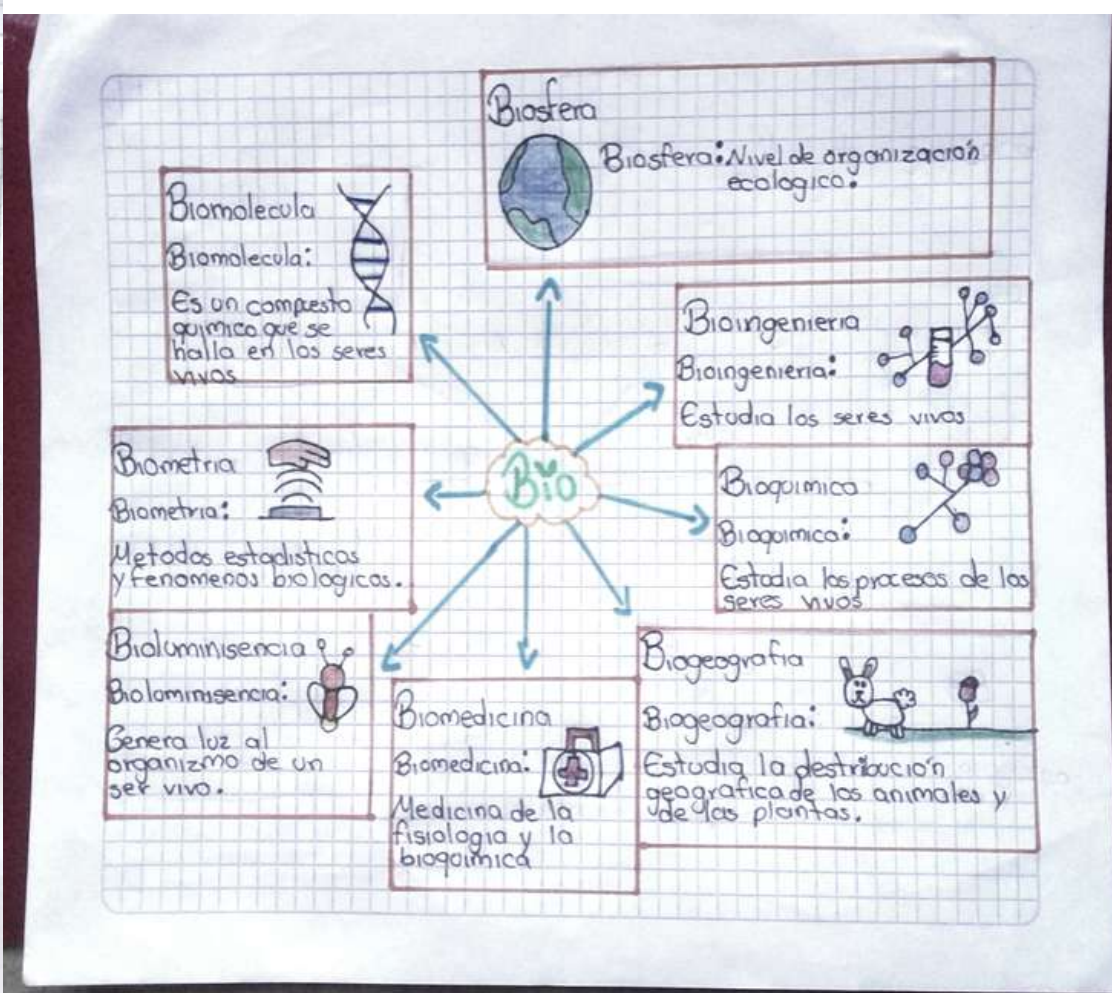 Biosfera
Biosfera: Nivel de organización
ecologico.
Biomolecula
Biomolecula:
Es un compuesto
quimico que se
halla en los seres
vivos
Bioingenieria
Bioingenieria:
Estudia los seres vivos
Biometria
Biometria:
Metodos estadisticos
y fenomenos biologicos.
Bio
Bioquimica
Bioquimica:
Estudia los procesos de los
seres vivos
Bioluminisencia
Bioluminisencia:
Genera luz al
organizmo de un
ser vivo.
Biomedicina
Biomedicina:
Medicina de la
fisiologia y la
bioquimica
Biogeografia
Biogeografia:
Estudia la destribución
geografica de los animales y
de las plantas.